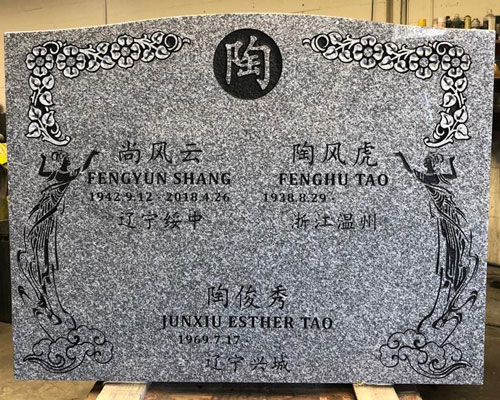 陶
尚风云 陶风虎
FENGYUN SHANG FENGHU TAO
1942.9.12 - 2018.4.26 1938.8.29 -
辽宁绥中 浙江温州
陶俊秀
JUNXIU ESTHER TAO
1969.7.17
辽宁兴城